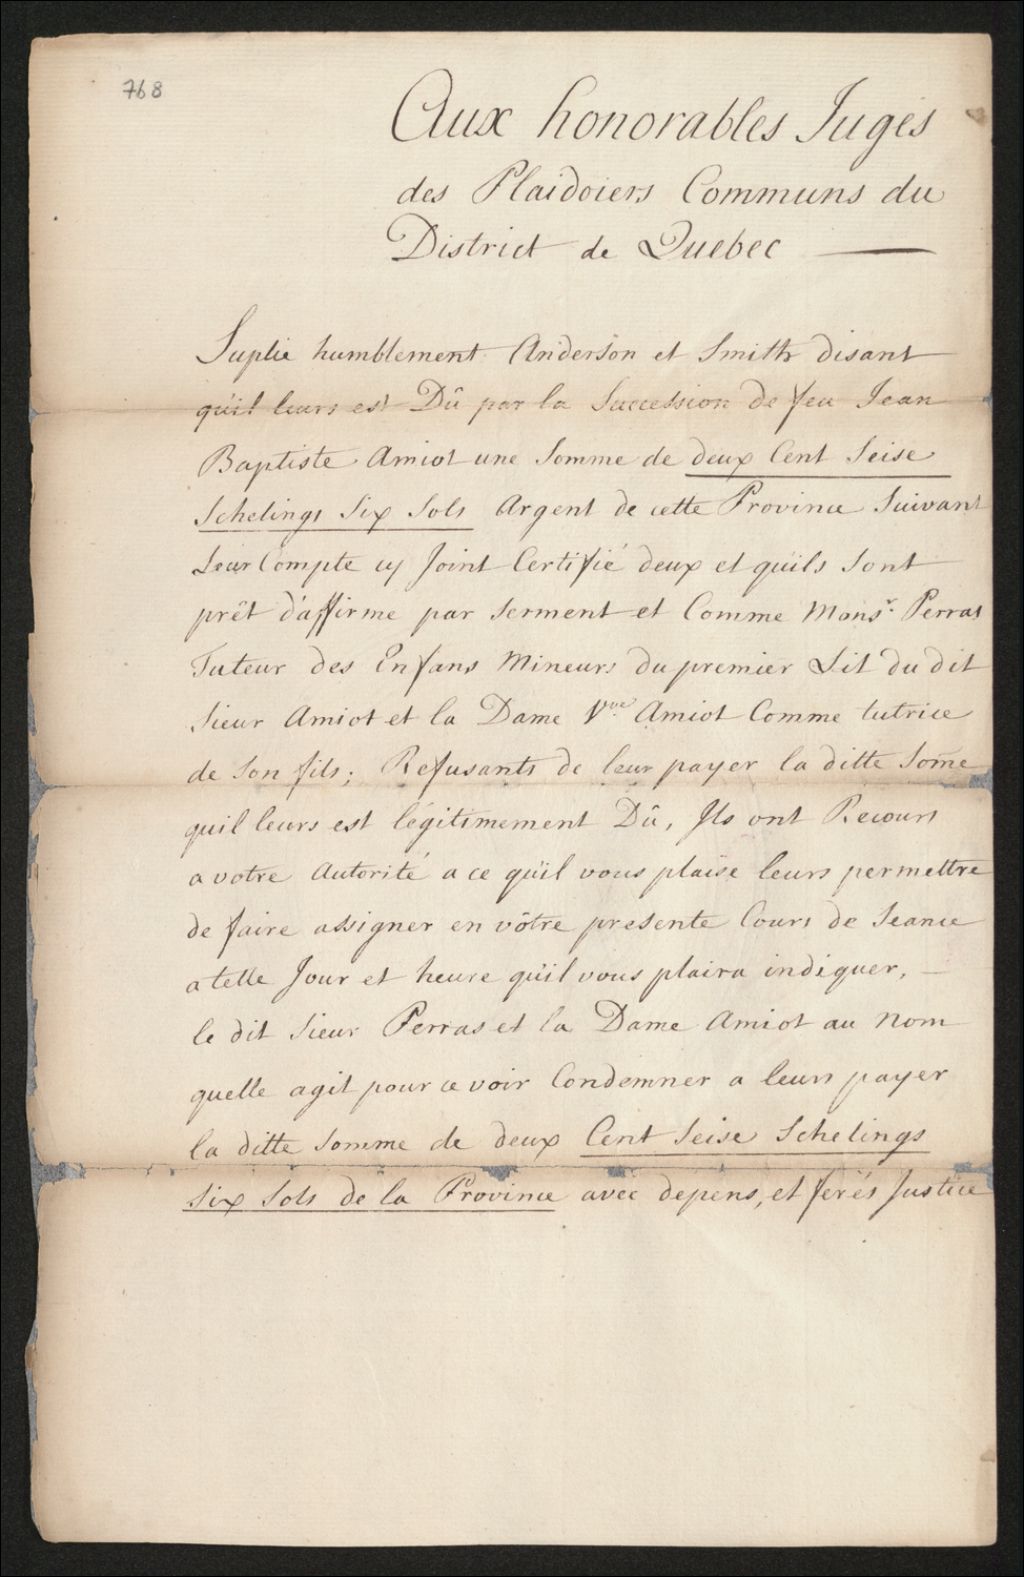 768
Aux honorables Juges
des Plaidoiers Communs du
District de Quebec
Suplie humblement Anderson et Smith disant
qu'il leurs est Dû par la Succession de feu Jean
Baptiste Amiot une Somme de deux Cent Seise
Schelings Six Sols Argent de cette Province Suivant
Leur Compte cy Joint Certifié deux et qu'ils sont
prêt d'affirme par Serment et Comme Monsr. Perras
Tuteur des Enfans Mineurs du premier Lit du dit
Sieur Amiot et la Dame Vve Amiot Comme tutrice
de Son fils; Refusants de leur payer la ditte Som̃e
quil leurs est légitimement Dû, Ils ont Recours
a votre Autorité a ce qu'il vous plaise leurs permettre
de faire assigner en vôtre presente Cours de Seance
a telle Jour et heure qu'il vous plaira indiquer,
le dit Sieur Perras et la Dame Amiot au Nom
quelle agit pour ce voir Condemner a leurs payer
la ditte Somme de deux Cent Seise Schelings
Six Sols de la Province avec depens, et ferés Justice